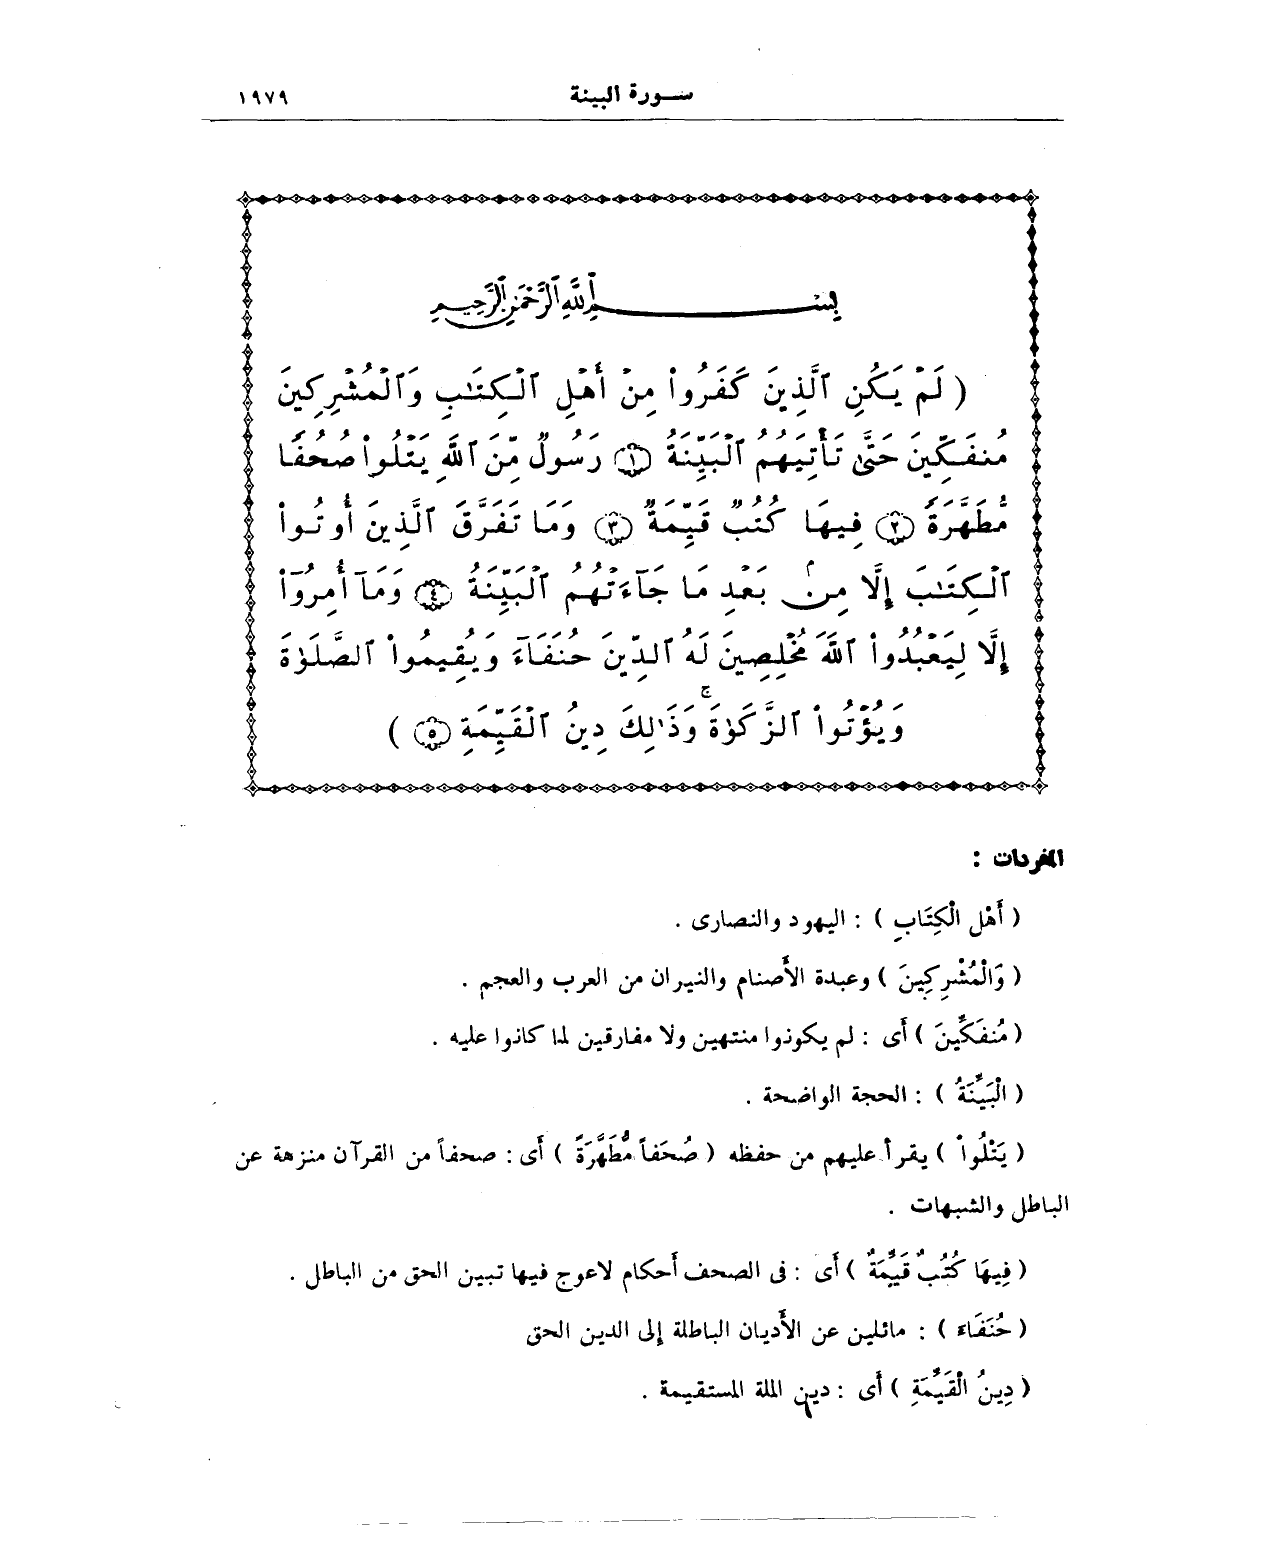 سورة البينة ١٩٧٩
بِسْمِ ٱللَّهِ ٱلرَّحْمَٰنِ ٱلرَّحِيمِ
( لَمْ يَكُنِ ٱلَّذِينَ كَفَرُوا۟ مِنْ أَهْلِ ٱلْكِتَٰبِ وَٱلْمُشْرِكِينَ
مُنفَكِّينَ حَتَّىٰ تَأْتِيَهُمُ ٱلْبَيِّنَةُ ١ رَسُولٌ مِّنَ ٱللَّهِ يَتْلُوا۟ صُحُفًا
مُّطَهَّرَةً ٢ فِيهَا كُتُبٌ قَيِّمَةٌ ٣ وَمَا تَفَرَّقَ ٱلَّذِينَ أُوتُوا۟
ٱلْكِتَٰبَ إِلَّا مِنۢ بَعْدِ مَا جَآءَتْهُمُ ٱلْبَيِّنَةُ ٤ وَمَآ أُمِرُوٓا۟
إِلَّا لِيَعْبُدُوا۟ ٱللَّهَ مُخْلِصِينَ لَهُ ٱلدِّينَ حُنَفَآءَ وَيُقِيمُوا۟ ٱلصَّلَوٰةَ
وَيُؤْتُوا۟ ٱلزَّكَوٰةَ ۚ وَذَٰلِكَ دِينُ ٱلْقَيِّمَةِ ٥ )
المفردات :
( أَهْلِ الْكِتَابِ ) : اليهود والنصارى .
( وَالْمُشْرِكِينَ ) وعبدة الأصنام والنيران من العرب والعجم .
( مُنفَكِّينَ ) أى : لم يكونوا منتهين ولا مفارقين لما كانوا عليه .
( الْبَيِّنَةُ ) : الحجة الواضحة .
( يَتْلُواْ ) يقرأ عليهم من حفظه ( صُحَفاً مُّطَهَّرَةً ) أى : صحفاً من القرآن منزهة عن
الباطل والشبهات .
( فِيهَا كُتُبٌ قَيِّمَةٌ ) أى : فى الصحف أحكام لاعوج فيها تبين الحق من الباطل .
( حُنَفَاءَ ) : مائلين عن الأديان الباطلة إلى الدين الحق
( دِينُ الْقَيِّمَةِ ) أى : دين الملة المستقيمة .